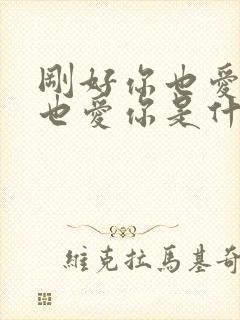 剛好你也愛
也愛你是什
維克拉馬基奇